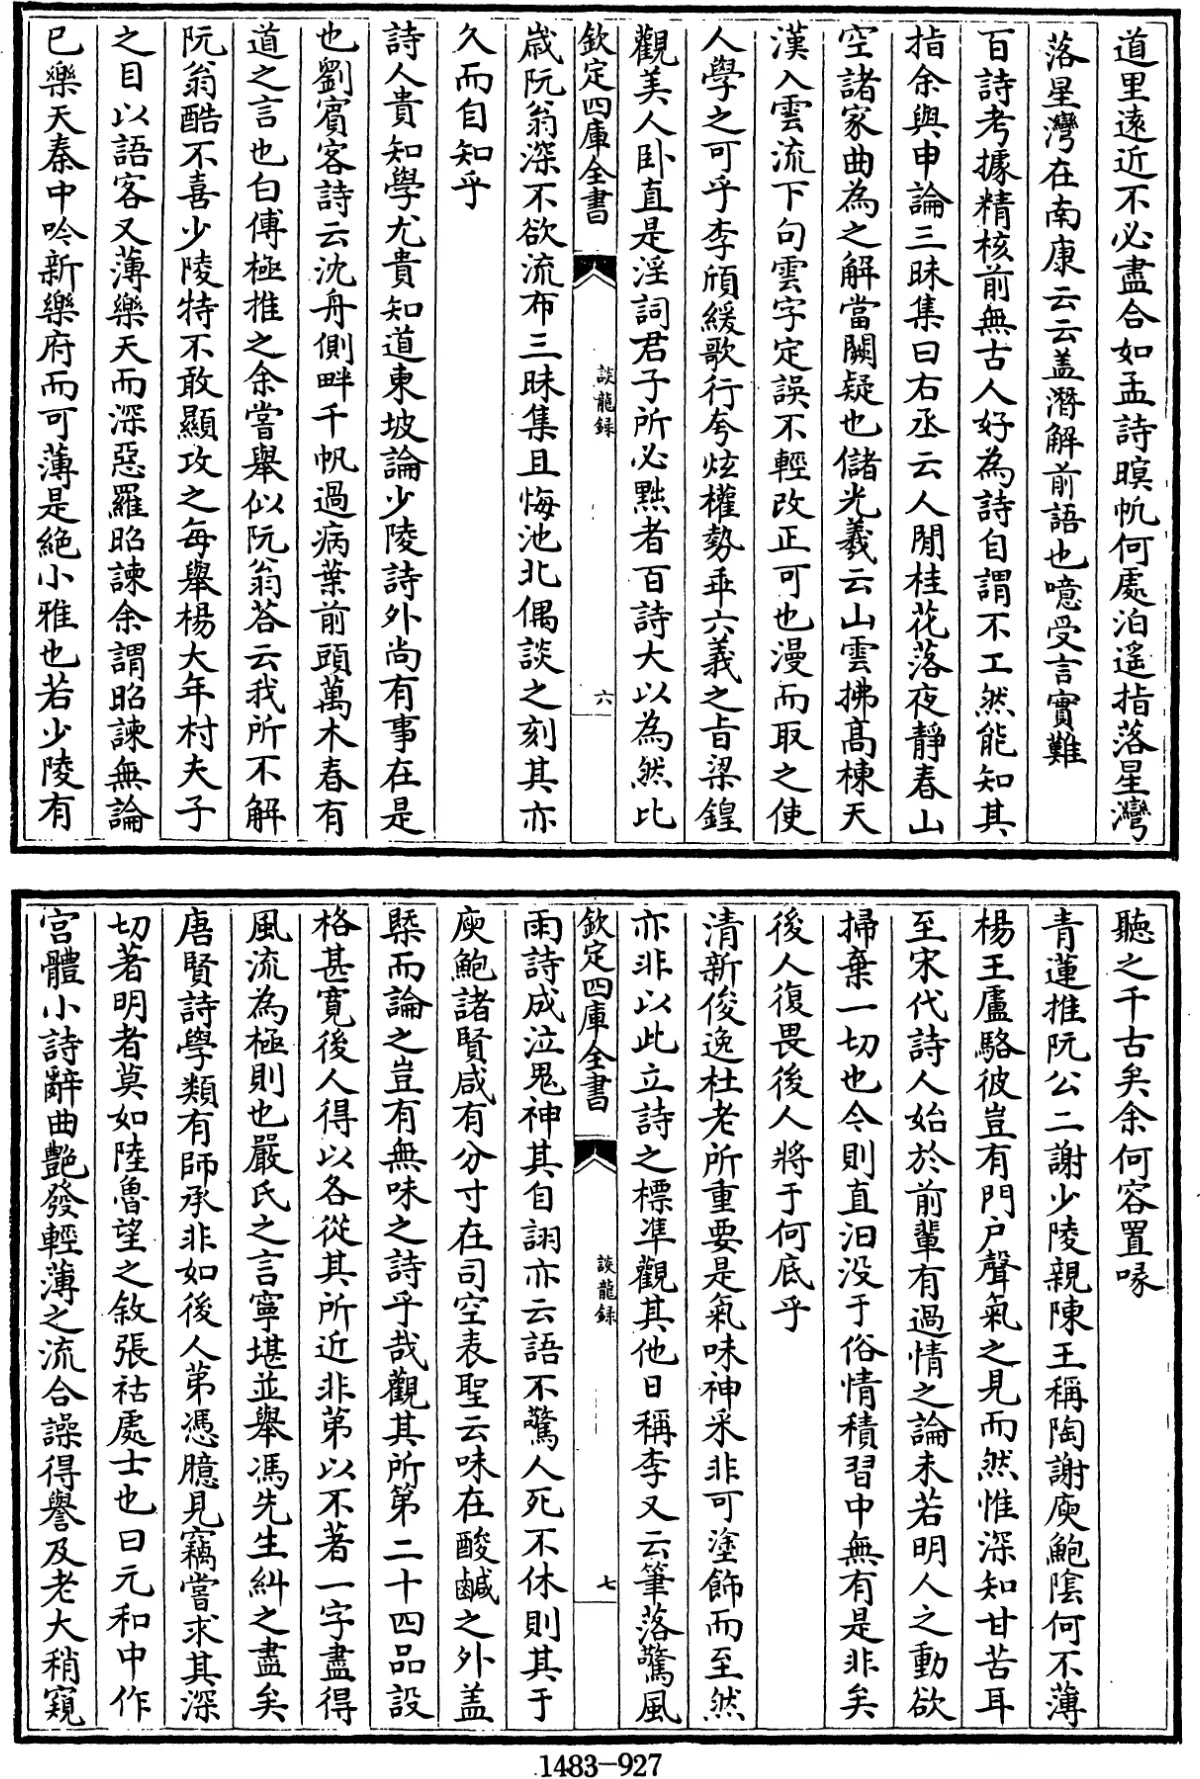 道里遠近不必盡合如孟詩暝帆何處泊遥指落星灣
落星灣在南康云云盖潛解前語也噫受言實難
百詩考據精核前無古人好為詩自謂不工然能知其
指余與申論三昧集曰右丞云人閒桂花落夜靜春山
空諸家曲為之解當闕疑也儲光羲云山雲拂髙棟天
漢入雲流下句雲字定誤不輕改正可也漫而取之使
人學之可乎李頎緩歌行夸炫權勢乖六義之旨梁鍠
觀美人卧直是淫詞君子所必黜者百詩大以為然比
欽定四庫全書
談龍録
六
歳阮翁深不欲流布三昧集且悔池北偶談之刻其亦
久而自知乎
詩人貴知學尤貴知道東坡論少陵詩外尚有事在是
也劉賓客詩云沈舟側畔千帆過病葉前頭萬木春有
道之言也白傅極推之余嘗舉似阮翁荅云我所不解
阮翁酷不喜少陵特不敢顯攻之每舉楊大年村夫子
之目以語客又薄樂天而深惡羅昭諫余謂昭諫無論
已樂天秦中吟新樂府而可薄是絶小雅也若少陵有
聽之千古矣余何容置喙
青蓮推阮公二謝少陵親陳王稱陶謝庾鮑陰何不薄
楊王盧駱彼豈有門户聲氣之見而然惟深知甘苦耳
至宋代詩人始於前輩有過情之論未若明人之動欲
掃棄一切也今則直汨没于俗情積習中無有是非矣
後人復畏後人將于何底乎
清新俊逸杜老所重要是氣味神采非可塗飾而至然
亦非以此立詩之標準觀其他日稱李又云筆落驚風
欽定四庫全書
談龍録
七
雨詩成泣鬼神其自詡亦云語不驚人死不休則其于
庾鮑諸賢咸有分寸在司空表聖云味在酸鹹之外盖
槩而論之豈有無味之詩乎哉觀其所第二十四品設
格甚寛後人得以各從其所近非第以不著一字盡得
風流為極則也嚴氏之言寧堪並舉馮先生糾之盡矣
唐賢詩學類有師承非如後人第憑臆見竊嘗求其深
切著明者莫如陸魯望之敘張祜處士也曰元和中作
宫體小詩辭曲艷發輕薄之流合譟得譽及老大稍窺
1483-927